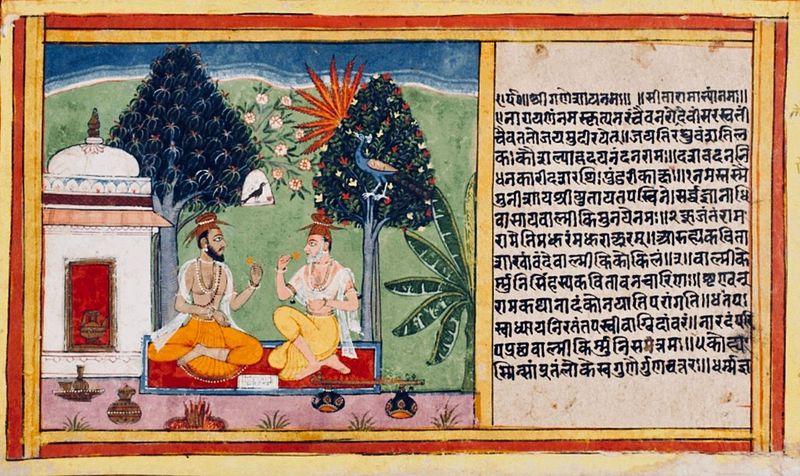 श्रीगणेशायनमः॥ ॥सीतारामाभ्यांनमः॥
नारायणंनमस्कृत्यनरंचैवनरोदेवींसरस्वतीं
चैवततोजयमुदीरयेत्॥जयतिरघुवंशतिल
कःकौशल्याहृदयनंदनरामः॥दशवदननि
धनकारीदाशरथिःपुंडरीकाक्षः॥१नमस्तस्मै
मुनीशायश्रीयुतायतपस्विने॥सर्वज्ञानाधि
वासायवाल्मीकिमुनयेनमः॥२कूजंतंराम
रामेतिमधुरंमधुराक्षरम्॥आरुह्यकविता
शाखांवंदेवाल्मीकिकोकिलं॥३॥वाल्मीके
र्मुनिसिंहस्यकवितावनचारिणः॥शृण्वन्
रामकथानादंकोनयातिपरांगतिं॥४तपः
स्वाध्यायनिरतंतपस्वीवाग्विदांवरं॥नारदंपरि
पप्रछवाल्मीकिर्मुनिसत्तमः॥५कोन्व
स्मिन्सांप्रतंलोकेस्वगुणैर्गुणवत्तरः॥धर्मज्ञ